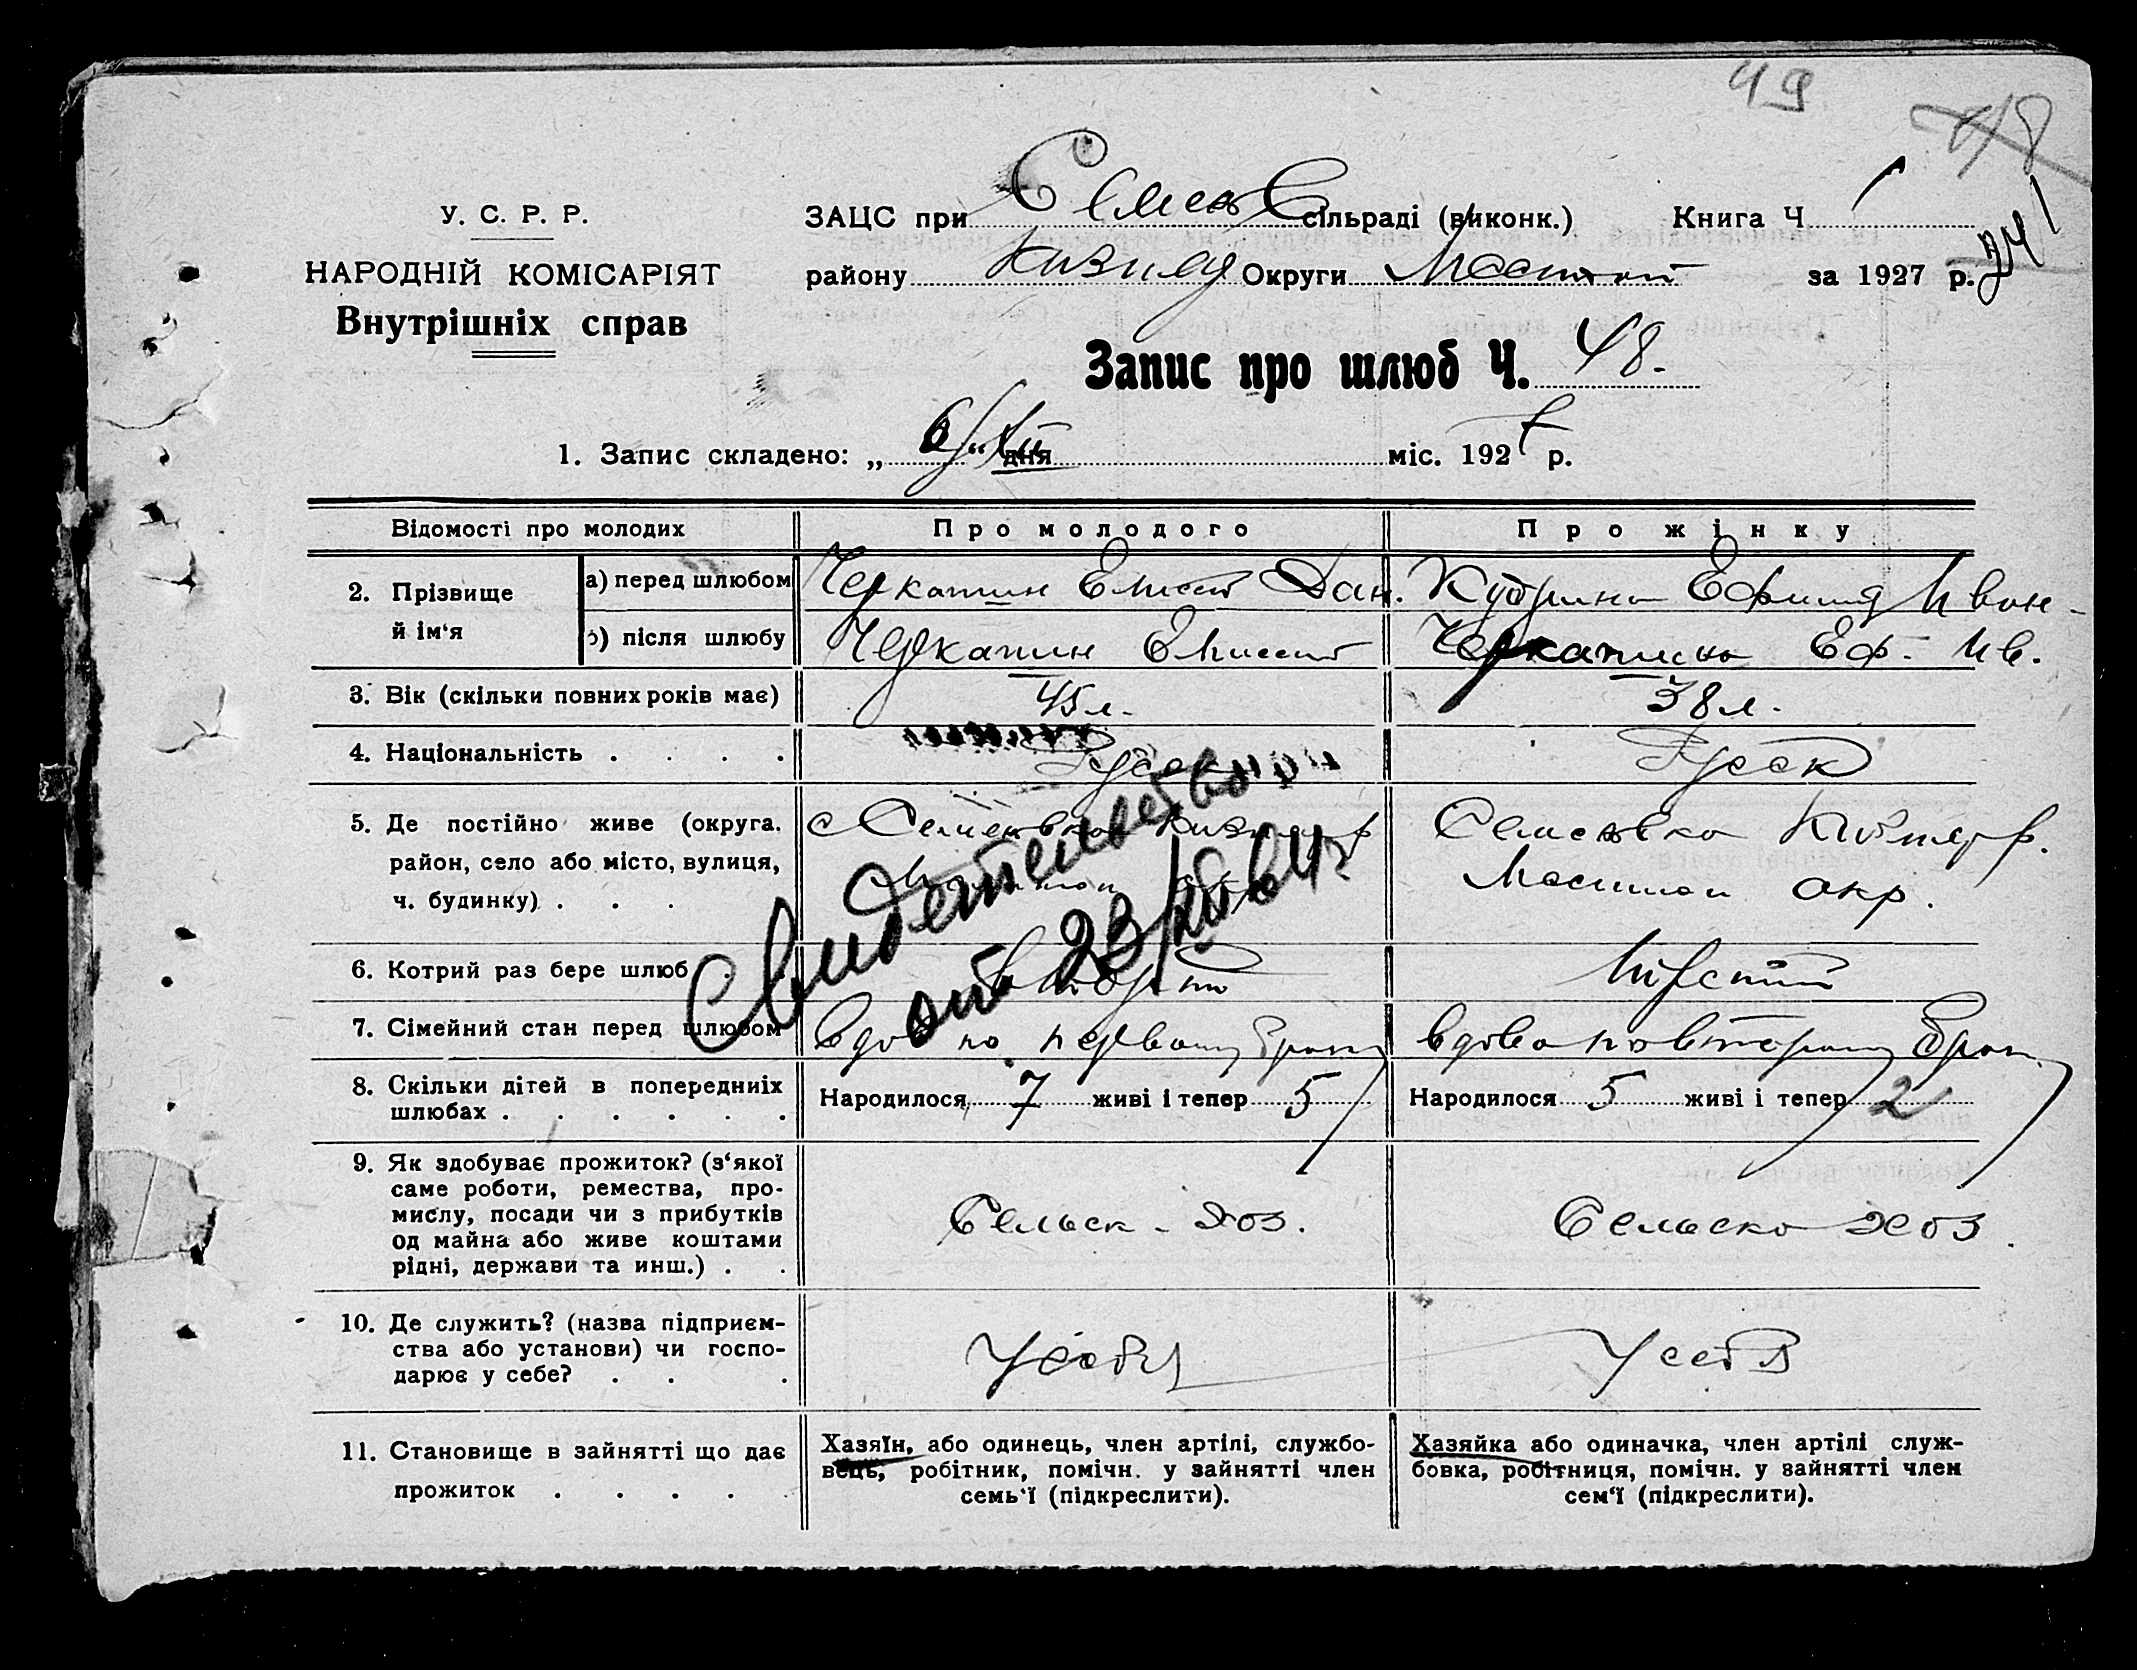 49
48
У. С. Р. Р.
ЗАЦС при Семенов сільраді (виконк.) Книга Ч 1
241
НАРОДНІЙ КОМІСАРІЯТ
району Кизияр Округи за 1927 р.
Внутрішніх справ
Запис про шлюб Ч. 48.
1. Запис складено: „ 6/XII “ дня міс. 1927 р.
Відомості про молодих Про молодого Про жінку
2. Прізвище й ім‘я
а) перед шлюбом Черкашин Елисей Дан. Кудрина Ефимия Иван.
б) після шлюбу Черкашин Елисей Черкашина Еф. Ив.
3. Вік (скільки повних років має) 45 л. 38 л.
4. Національність . . . . Русск Русск
5. Де постійно живе (округа, с Семеновка Кизияр р Семеновка Кизияр р.
район, село або місто, вулиця, окр.
ч. будинку) . . .
Свидетельство
от 23/
6. Котрий раз бере шлюб . Второй Третий
7. Сімейний стан перед шлюбом вдов по первому браку вдова по второму браку
8. Скільки дітей в попередниіх Народилося 7 живі і тепер 5 Народилося 5 живі і тепер 2
шлюбах . . . . . .
9. Як здобуває прожиток? (з‘якої
саме роботи, ремества, про-
мислу, посади чи з прибутків Сельск - хоз. Сельско хоз.
од майна або живе коштами
рідні, держави та инш.) . .
10. Де служить? (назва підприєм-
ства або установи) чи госпо- У себя У себя
дарює у себе? . . .
11. Становище в зайнятті що дає
прожиток . . . . .
Хазяїн, або одинець, член артілі, службо-
вець, робітник, помічн. у зайнятті член
семь‘ї (підкреслити).
Хазяйка або одиначка, член артілі служ-
бовка, робітниця, помічн. у зайнятті член
сем‘ї (підкреслити).